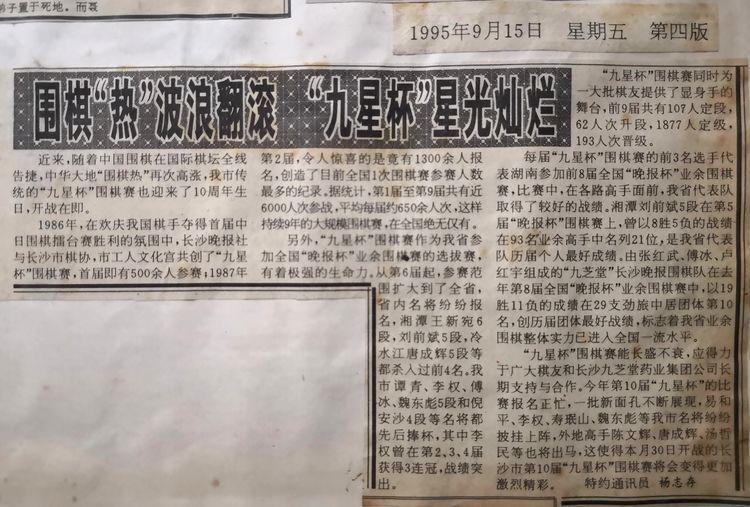 弟子置于死地。而聂
1995年9月15日 星期五 第四版
围棋“热”波浪翻滚 “九星杯”星光灿烂
近来,随着中国围棋在国际棋坛全线
告捷,中华大地“围棋热”再次高涨,我市传
统的“九星杯”围棋赛也迎来了10周年生
日,开战在即。
1986年,在欢庆我国棋手夺得首届中
日围棋擂台赛胜利的氛围中,长沙晚报社
与长沙市棋协,市工人文化宫共创了“九星
杯”围棋赛,首届即有500余人参赛;1987年
第2届,令人惊喜的是竟有1300余人报
名,创造了目前全国1次围棋赛参赛人数
最多的纪录。据统计,第1届至第9届共有近
6000人次参战,平均每届约650余人次,这样
持续9年的大规模围棋赛,在全国绝无仅有。
另外,“九星杯”围棋赛作为我省参
加全国“晚报杯”业余围棋赛的选拔赛,
有着极强的生命力。从第6届起,参赛范
围扩大到了全省,
省内名将纷纷报
名,湘潭王新宛6
段,刘前斌5段,冷
水江唐成辉5段等
都杀入过前4名。我
市谭青、李权、傅
冰、魏东彪5段和倪
安沙4段等名将都
先后捧杯,其中李
权曾在第2、3、4届
获得3连冠,战绩突
出。
“九星杯”围棋赛同时为
一大批棋友提供了显身手的
舞台,前9届共有107人定段,
62人次升段,1877人定级,
193人次晋级。
每届“九星杯”围棋赛的前3名选手代
表湖南参加前8届全国“晚报杯”业余围棋
赛,比赛中,在各路高手面前,我省代表队
取得了较好的战绩。湘潭刘前斌5段在第5
届“晚报杯”围棋赛上,曾以8胜5负的战绩
在93名业余高手中名列21位,是我省代表
队历届个人最好成绩。由张红武、傅冰、卢
红宇组成的“九芝堂”长沙晚报围棋队在去
年第8届全国“晚报杯”业余围棋赛中,以19
胜11负的成绩在29支劲旅中居团体第10
名,创历届团体最好战绩,标志着我省业余
围棋整体实力已进入全国一流水平。
“九星杯”围棋赛能长盛不衰,应得力
于广大棋友和长沙九芝堂药业集团公司长
期支持与合作。今年第10届“九星杯”的比
赛报名正忙,一批新面孔不断展现,易和
平、李权、寿珉山、魏东彪等我市名将纷纷
披挂上阵,外地高手陈文辉、唐成辉、汤哲
民等也将出马,这使得本月30日开战的长
沙市第10届“九星杯”围棋赛将会变得更加
激烈精彩。 特约通讯员 杨志存